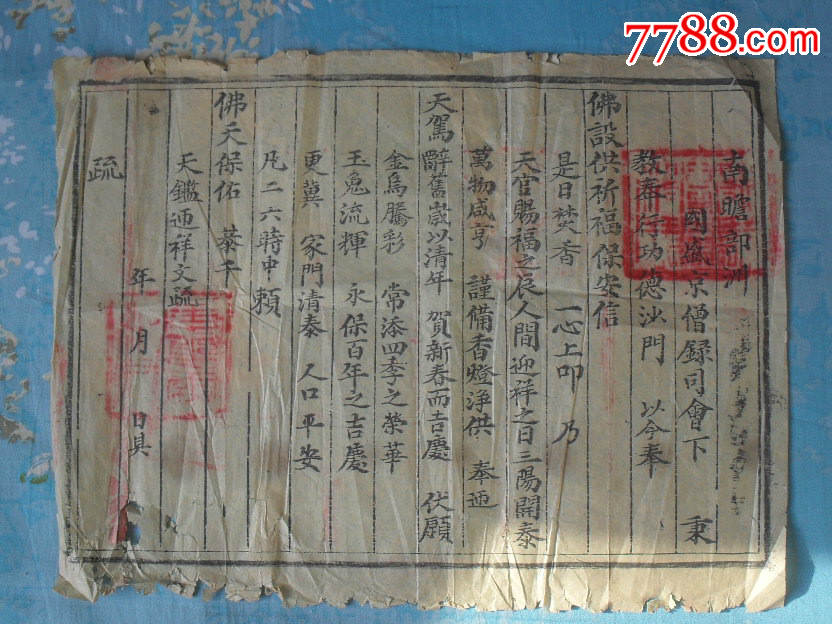 7788.com
南瞻部洲
國盛京僧録司會下 秉
教奉行功德沙門 以今奉
佛設供祈福保安信
是日焚香 一心上叩 乃
天官賜福之辰人間迎祥之日三陽開泰
萬物咸亨 謹備香燈淨供 奉迎
天駕辭舊歲以清年 賀新春而吉慶 伏願
金烏騰彩 常添四季之榮華
玉兔流輝 永保百年之吉慶
更冀 家門清泰 人口平安
凡二六時中 賴
佛天保佑 恭干
天鑑通祥文疏
年 月 日具
疏